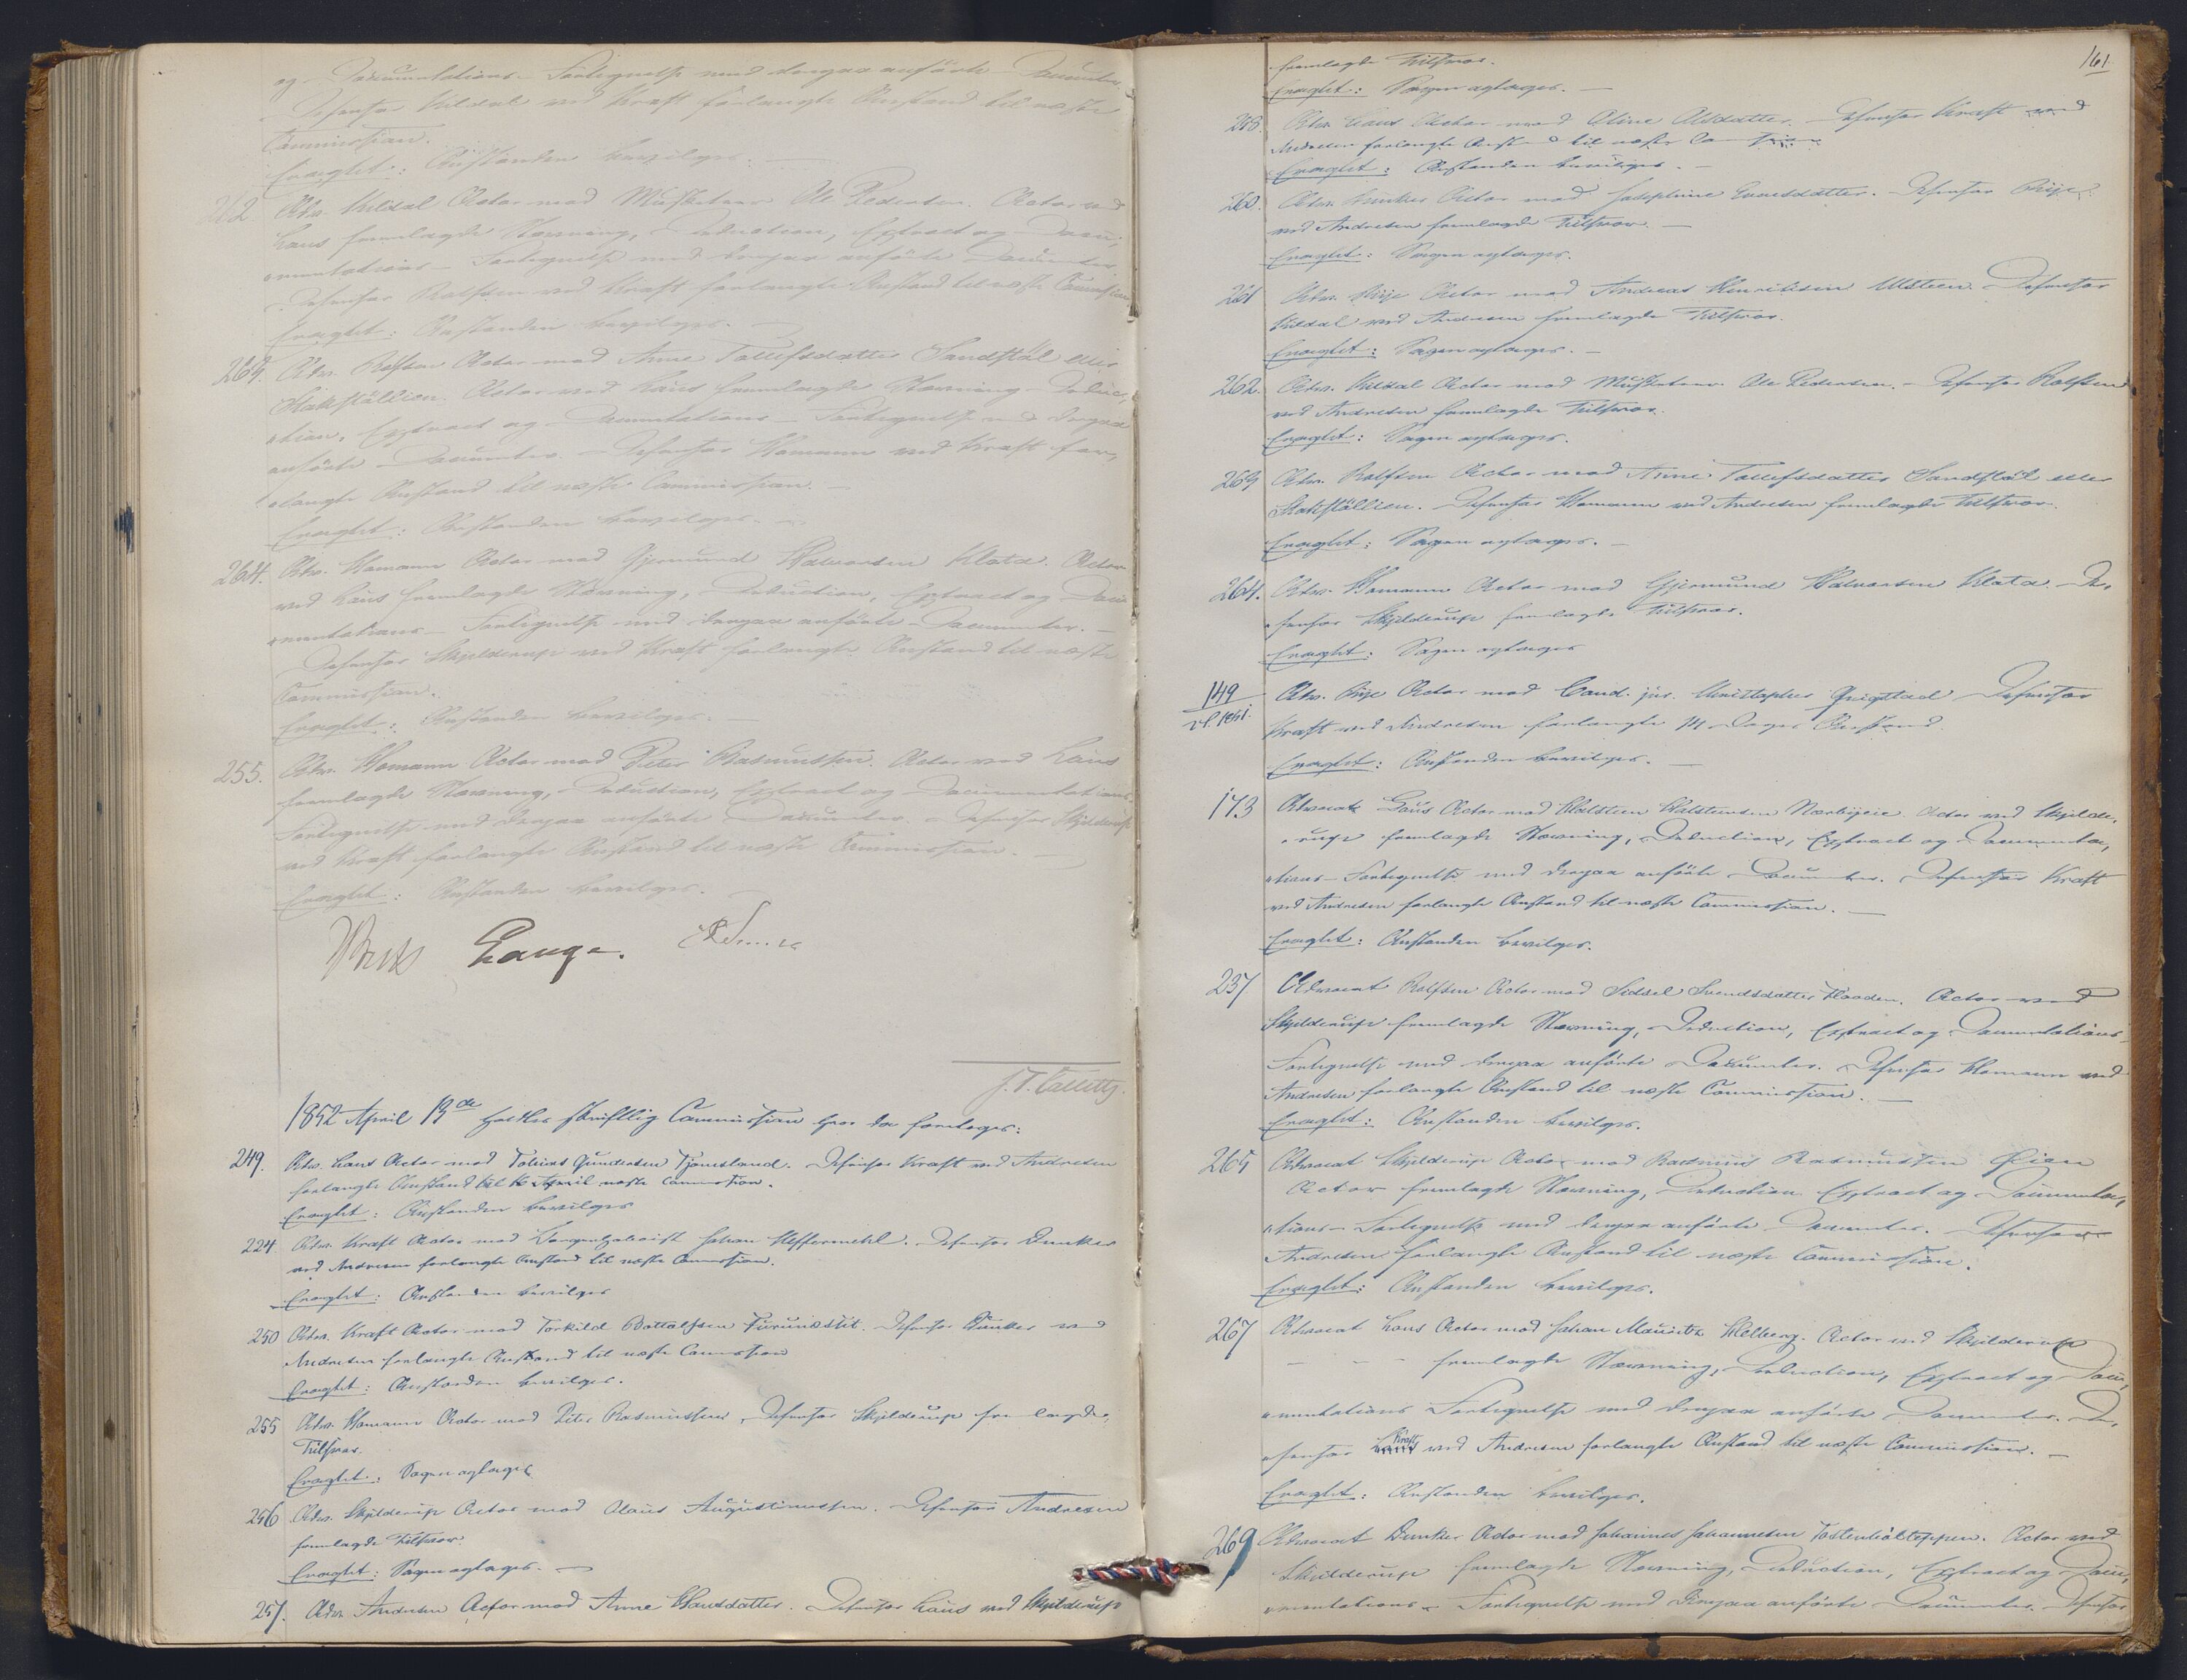 og Documentations-Fortegnelse med deryaa anførte Documenter.
Defensor Kildal ved Kraft forlangte Anstand til næste
Commission.
Eragtet: Anstanden bevilges.
262. Adv. Kildal Actor mod Musketeer Ole Pedersen. Actor ved
Hans fremlagde Stævning, Deduction, Extract og Docu-
mentations-Fortegnelse med deryaa anførte Documenter.
Defensor Rolfsen ved Kraft forlangte Anstand til næste Commission
Eragtet: Anstanden bevilges.
263. Adv. Rolfsen Actor mod Anne Tollefsdatter Sandstöl eller
Stakställien. Actor ved Haus fremlagde Stævning, Deduc-
tion, Extract og Documentations-Fortegnelse med deryaa
anførte Documenter. Defensor Homann ved Kraft for-
langte Anstand til næste Commission.
Eragtet: Anstanden bevilges.
264. Adv. Homann Actor mod Gjermund Halvorsen Klata. Actor
ved Haus fremlagde Stævning, Deduction, Extract og Docu-
mentations-Fortegnelse med deryaa anførte Documenter.
Defensor Skjelderup ved Kraft forlangte Anstand til næste
Commission.
Eragtet: Anstanden bevilges.
255. Adv. Homann Actor mod Peter Rasmussen. Actor ved Haus
fremlagde Stævning, Deduction, Extract og Documentations-
Fortegnelse med deryaa anførte Documenter. Defensor Skjelderup
ved Kraft forlangte Anstand til næste Commission.
Eragtet: Anstanden bevilges.
Lange.
1852 April 13de holdtes skriftlig Commission hvor da foretoges:
249. Adv. Haus Actor mod Tobias Gundersen Tjomsland. Defensor Kraft ved Andresen
forlangte Anstand til næste Commission.
Eragtet: Anstanden bevilges
224 Adv. Kraft Actor mod Johan Heffermehl. Defensor Dunker
ved Andresen forlangte Anstand til næste Commission.
Eragtet: Anstanden bevilges
250 Adv. Kraft Actor mod Torkild Bottolfsen. Defensor Dunker ved
Andresen forlangte Anstand til næste Commission
Eragtet: Anstanden bevilges.
255 Adv. Homann Actor mod Peter Rasmussen. Defensor Skjelderup fremlagde
Tilsvar.
Eragtet: Sagen optages
256 Adv. Skjelderup Actor mod Claus Augustinussen. Defensor Andresen
fremlagde Tilsvar.
Eragtet: Sagen optages.
257. Adv. Andresen Actor mod Anne Hansdatter. Defensor Haus ved Skjelderup
161.
fremlagde Tilsvar.
Eragtet: Sagen optages.
258. Adv. Haus Actor mod Oline Olsdatter. Defensor Kraft ved
Andresen forlangte Anstand til næste Commission
Eragtet: Anstanden bevilges.
260. Adv. Dunker Actor mod Josephine Evensdatter. Defensor
ved Andresen fremlagde Tilsvar.
Eragtet: Sagen optages.
261 Adv. Actor mod Andreas Henriksen Ulsteen. Defensor
Kildal ved Andresen fremlagde Tilsvar.
Eragtet: Sagen optages.
262. Adv. Kildal Actor mod Musketeer Ole Pedersen. Defensor Rolfsen
ved Andresen fremlagde Tilsvar.
Eragtet: Sagen optages.
263 Adv. Rolfsen Actor mod Anne Tollefsdatter Sandstöl eller
Stakställien. Defensor Homann ved Andresen fremlagde Tilsvar.
Eragtet: Sagen optages.
264. Adv. Homann Actor mod Gjermund Halvorsen Klata. De-
fensor Skjelderup fremlagde Tilsvar.
Eragtet: Sagen optages
149 Adv. Actor mod Cand. jur. Christopher Grigstad Defensor
Kraft ved Andresen forlangte 14 Dages Anstand.
Eragtet: Anstanden bevilges.
173 Advocat Haus Actor mod Halsteen Halsteensen. Actor ved Skjelde-
rup fremlagde Stævning, Deduction, Extract og Documenta-
tions-Fortegnelse med deryaa anførte Documenter. Defensor Kraft
ved Andresen forlangte Anstand til næste Commission.
Eragtet: Anstanden bevilges.
237 Advocat Rolfsen Actor mod Sidsel Svendsdatter Haaden. Actor ved
Skjelderup fremlagde Stævning, Deduction, Extract og Documentations-
Fortegnelse med deryaa anførte Documenter. Defensor Homann ved
Andresen forlangte Anstand til næste Commission.
Eragtet: Anstanden bevilges.
265 Advocat Skjelderup Actor mod Rasmus Rasmussen Øien
Actor fremlagde Stævning, Deduction Extract og Documenta-
tions-Fortegnelse med deryaa anførte Documenter. Defensor
Andresen forlangte Anstand til næste Commission.
Eragtet: Anstanden bevilges.
267 Advocat Haus Actor mod Johan Mauritz Hellberg. Actor ved Skjelderup
fremlagde Stævning, Deduction, Extract og Docu-
mentations Fortegnelse med deryaa anførte Documenter. De-
fensor Kraft ved Andresen forlangte Anstand til næste Commission.
Eragtet: Anstanden bevilges.
269 Advocat Dunker Actor mod Johannes Johannesen. Actor ved
Skjelderup fremlagde Stævning, Deduction, Extract og Docu-
mentations-Fortegnelse med deryaa anførte Documenter. Defensor